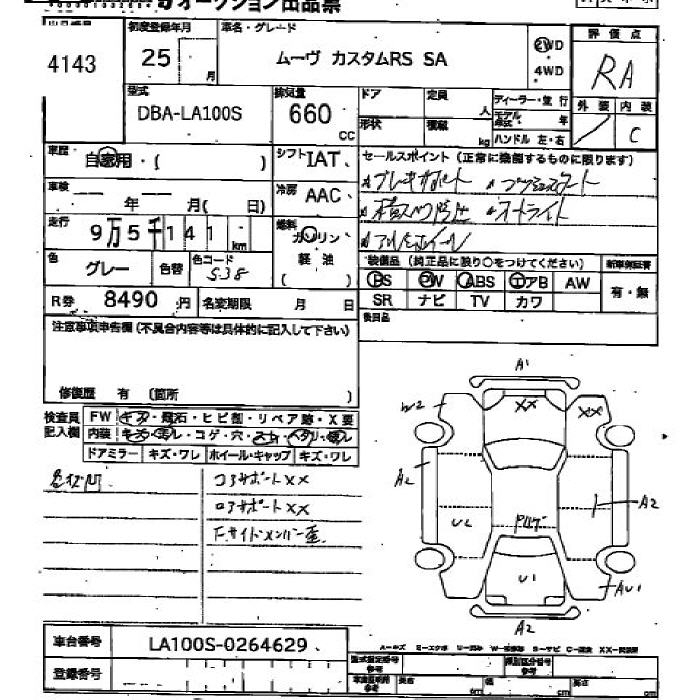 オークション出品票
4143
初度登録年月
25 月
車名・グレード
ムーヴ カスタムRS SA
2WD
4WD
評価点
RA
外装 内装
C
型式
DBA-LA100S
排気量
660 cc
ドア 定員 人
形状 積載 kg
ディーラー・並行
モデル年式 年
ハンドル 左・右
車歴
自家用・( )
シフト IAT
冷房 AAC
セールスポイント (正常に機能するものに限ります)
プッシュスタート
オートライト
アルミホイール
車検 年 月( 日)
走行 9万5千141 km
燃料
ガソリン
軽油
( )
色 グレー 色替 色コード S38
装備品 (純正品に限り○をつけてください)
新車保証書
有・無
PS PW ABS エアB AW
SR ナビ TV カワ
R券 8490 円 名変期限 月 日
後日品
注意事項申告欄 (不具合内容等は具体的に記入して下さい)
修復歴 有 (箇所 )
検査員記入欄
FW キズ・飛石・ヒビ割・リペア跡・X要
内装 キズ・汚レ・コゲ・穴・スレ・ヘタリ・
ドアミラー キズ・ワレ ホイール・キャップ キズ・ワレ
コアサポートXX
ロアサポートXX
F.サイドメンバー歪
A1
W2
XX
XX
A2
A2
U2
U1
AU1
A2
車台番号 LA100S-0264629
登録番号
型式指定番号
類別区分番号
長さ cm 幅 cm 高さ cm